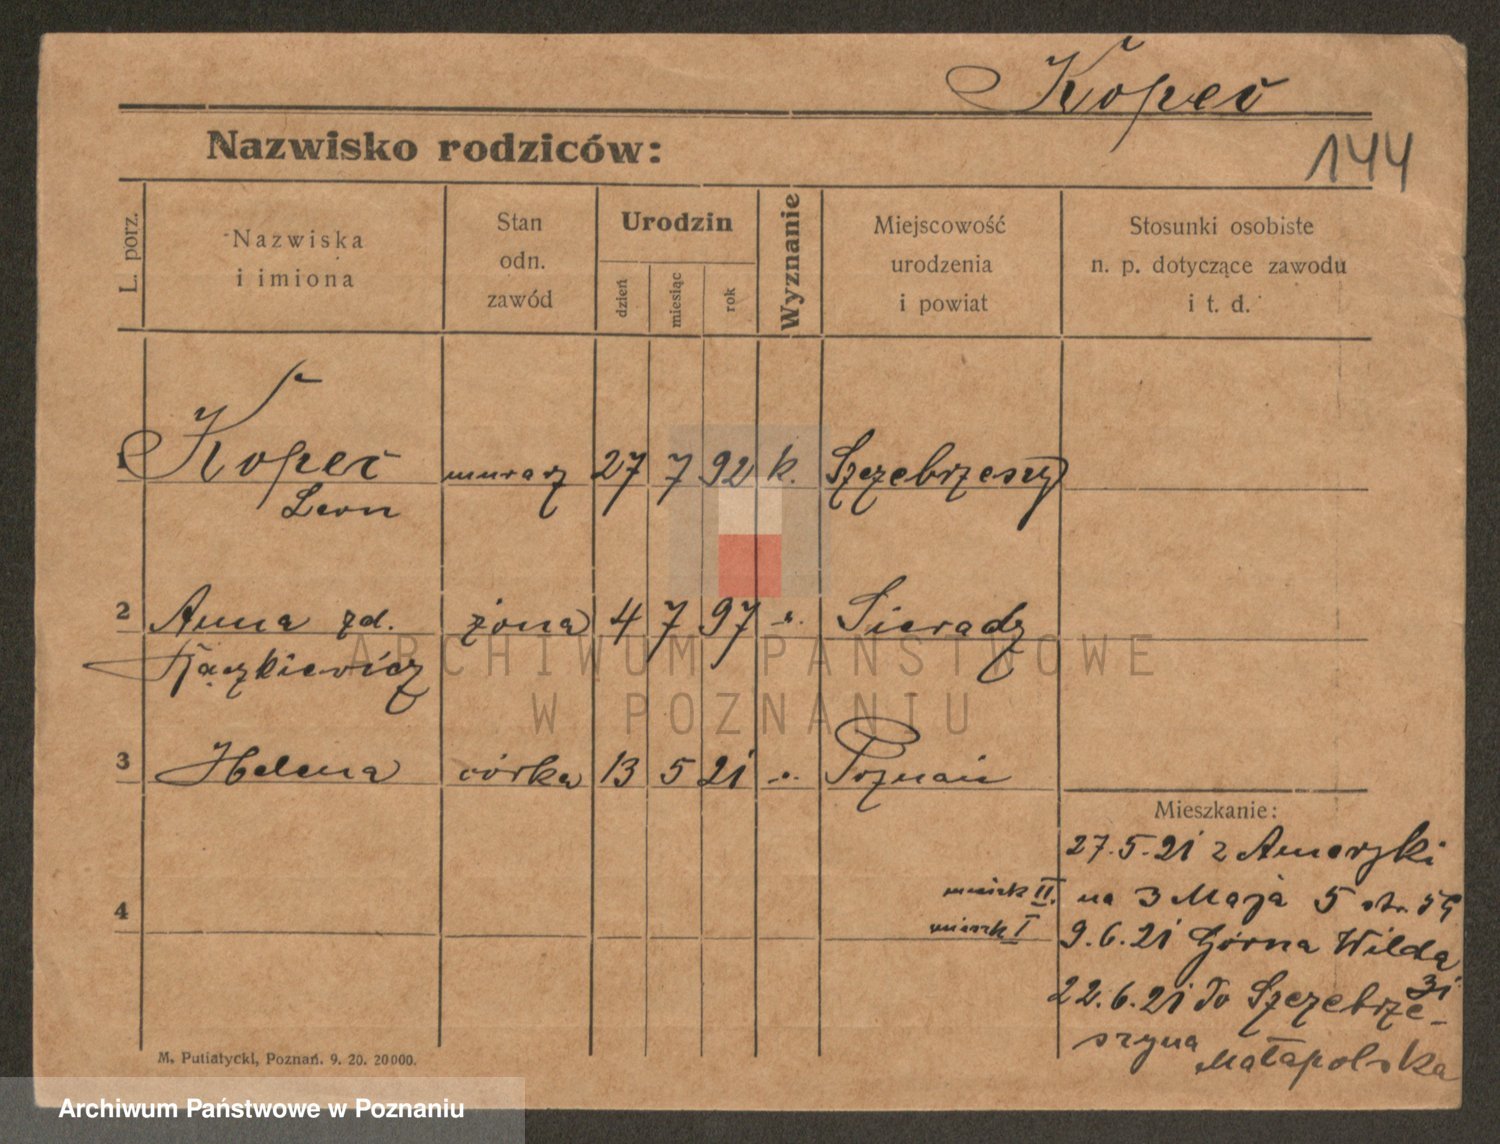 Kopeć
144
Nazwisko rodziców:
L. porz. Nazwiska i imiona Stan odn. zawód Urodzin dzień miesiąc rok Wyznanie Miejscowość urodzenia i powiat Stosunki osobiste n. p. dotyczące zawodu i t. d.
1 Kopeć murarz 27 7 92 k. Szczebrzeszyn
Leon
2 Anna zd. żona 4 7 97 Sieradz
Rączkiewicz
ARCHIWUM PAŃSTWOWE
W POZNANIU
3 Helena córka 13 5 21 Poznań
Mieszkanie:
27.5.21 z Ameryki
mieszk II. na 3 Maja 5 str.
4 mieszk I 9.6.21 Górna Wilda
31
22.6.21 do Szczebrze-
szyna Małapolska
M. Putiatycki, Poznań. 9. 20. 20000.
Archiwum Państwowe w Poznaniu